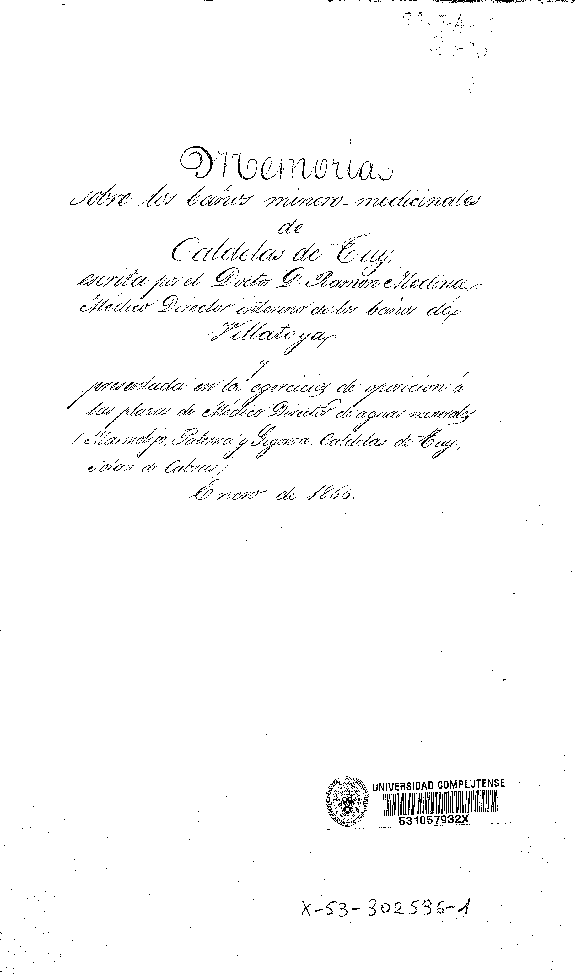 Memoria
sobre los baños minero-medicinales
de
Caldelas de Tuy,
escrita por el Doctor D. Ramon Medina,
Médico Director interino de los baños de
Villatoya,
y
presentada en los egercicios de oposicion á
las plazas de Médico Director de aguas minerales
(Marmolejo, Paterna y Gigonza, Caldelas de Tuy,
Solan de Cabras.)
Enero de 1866.
UNIVERSIDAD COMPLUTENSE
531057932X
X-53-302596-1